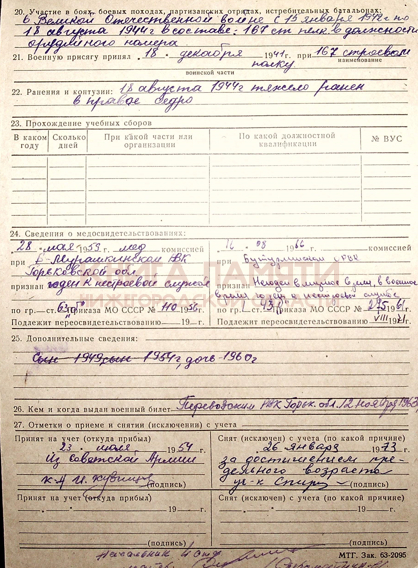 20. Участие в боях, боевых походах, партизанских отрядах, истребительных батальонах:
в Великой Отечественной войне с 15 января 1942г по
18 августа 1944г в составе: 167 ст полк в должности
орудийного номера
21. Военную присягу принял „18" декабря 1941г. при 167 стрелковом
наименование
полку
воинской части
22. Ранения и контузии: 18 августа 1944г тяжело ранен
в правое бедро
23. Прохождение учебных сборов
В каком году
Сколько дней
При какой части или организации
По какой должностной квалификации
№ ВУС
24. Сведения о медосвидетельствованиях:
„28" мая 1955г. мед комиссией
при Б-Мурашкинском РВК
Горьковской обл
признан годен к нестроевой службе
по гр. ст. 63 приказа МО СССР № 110 56г.
Подлежит переосвидетельствованию 19 г.
66 г. комиссией
признан Негоден в мирное время, в военное
время годен к нестроевой службе
по гр. ст. 43 приказа МО СССР № 275
Подлежит переосвидетельствованию VIII 1971г.
КНИГА ПАМЯТИ
НИЖЕГОРОДСКОЙ ОБЛАСТИ
25. Дополнительные сведения:
сын 1949 сын 1954г, дочь 1960г
26. Кем и когда выдан военный билет Перевозским РВК Горьк. обл. 12 ноября 1963
27. Отметки о приеме и снятии (исключении) с учета
Принят на учет (откуда прибыл)
„23" июля 1954г.
Из Советской Армии
(подпись)
Принят на учет (откуда прибыл)
„ " 19 г.
(подпись)
Снят (исключен) с учета (по какой причине)
„26" января 1973г.
за достижением предельного
возраста
(подпись)
Снят (исключен) с учета (по какой причине)
„ " 19 г.
(подпись)
МТГ. Зак. 63-2095